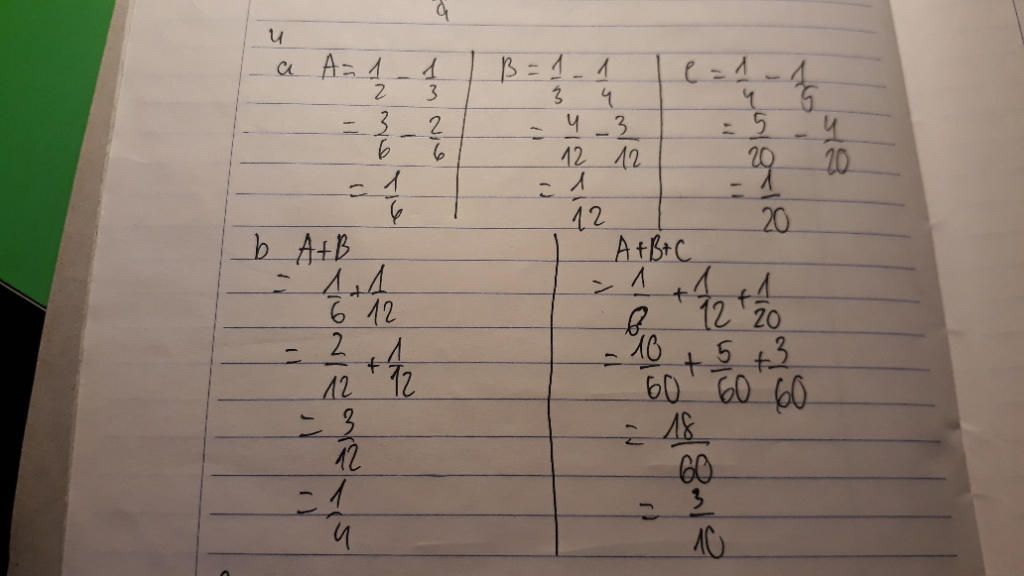 4
a A = 1/2 - 1/3
= 3/6 - 2/6
= 1/6
B = 1/3 - 1/4
= 4/12 - 3/12
= 1/12
C = 1/4 - 1/5
= 5/20 - 4/20
= 1/20
b A+B
= 1/6 + 1/12
= 2/12 + 1/12
= 3/12
= 1/4
A+B+C
= 1/6 + 1/12 + 1/20
= 10/60 + 5/60 + 3/60
= 18/60
= 3/10